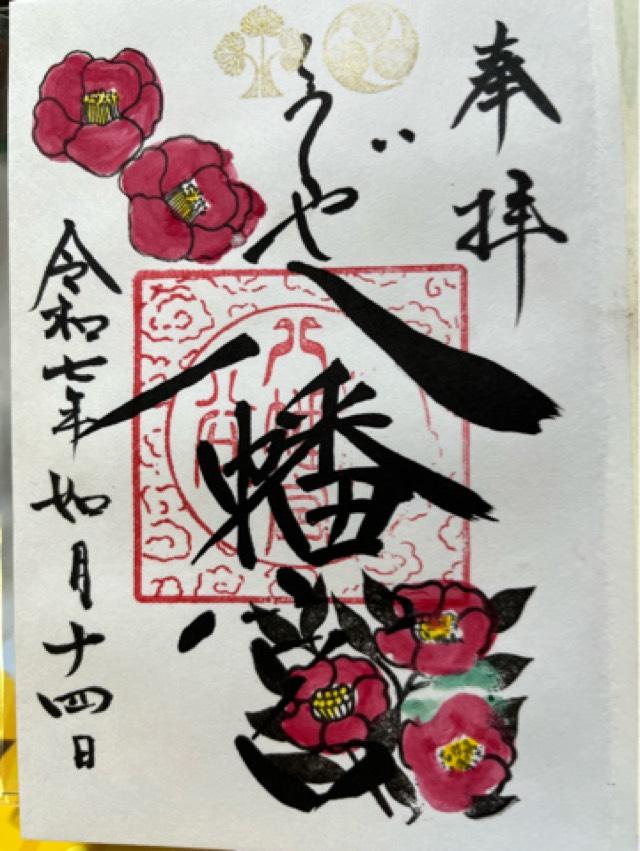 奉拝
八幡宮
令和七年如月十四日